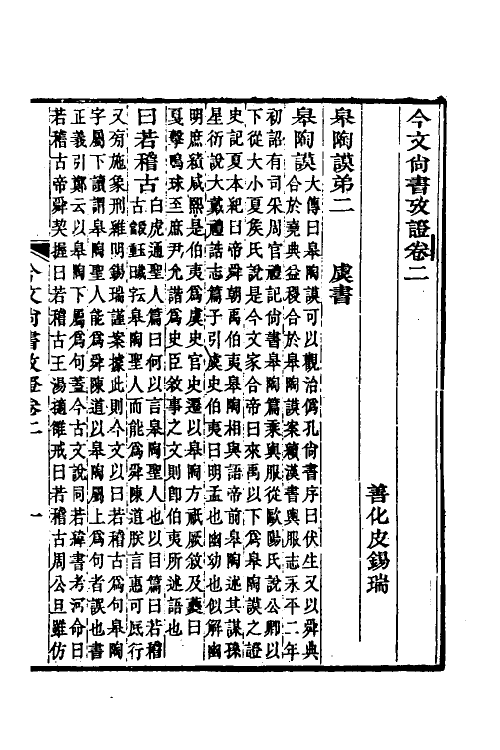 今文尚書攷證卷二
善化皮錫瑞
皋陶謨弟二　虞書
皋陶謨
大傳曰皋陶謨可以觀治僞孔尚書序曰伏生又以舜典
合於堯典益稷合於皋陶謨案續漢書輿服志永平二年
初詔有司采周官禮記尚書皋陶篇乘輿服從歐陽氏說公卿以
下從大小夏矦氏說是今文家合帝曰來禹以下爲皋陶謨之證
史記夏本紀曰帝舜朝禹伯夷皋陶相與語帝前皋陶述其謀孫
星衍說大戴禮誥志篇子引虞史伯夷曰明孟也幽幼也似解幽
明庶績咸熙是伯夷爲虞史官史遷以皋陶方祇厥敘及夔曰
戛擊鳴球至庶尹允諧爲史臣敘事之文則卽伯夷所述語也
曰若稽古
白虎通聖人篇曰何以言皋陶聖人也以目篇曰若稽
古皋陶聖人而能爲舜陳道朕言惠可厎行
又旁施象刑維明錫瑞謹案據此則今文以曰若稽古爲句皋陶
字屬下讀謂皋陶聖人能爲舜陳道以皋陶屬上爲句者誤也書
正義引鄭云以皋陶下屬爲句蓋今古文說同若緯書考河命曰
若稽古帝舜契握曰若稽古王湯摘雒戒曰若稽古周公旦雖仿
今文尚書攷證卷二　一